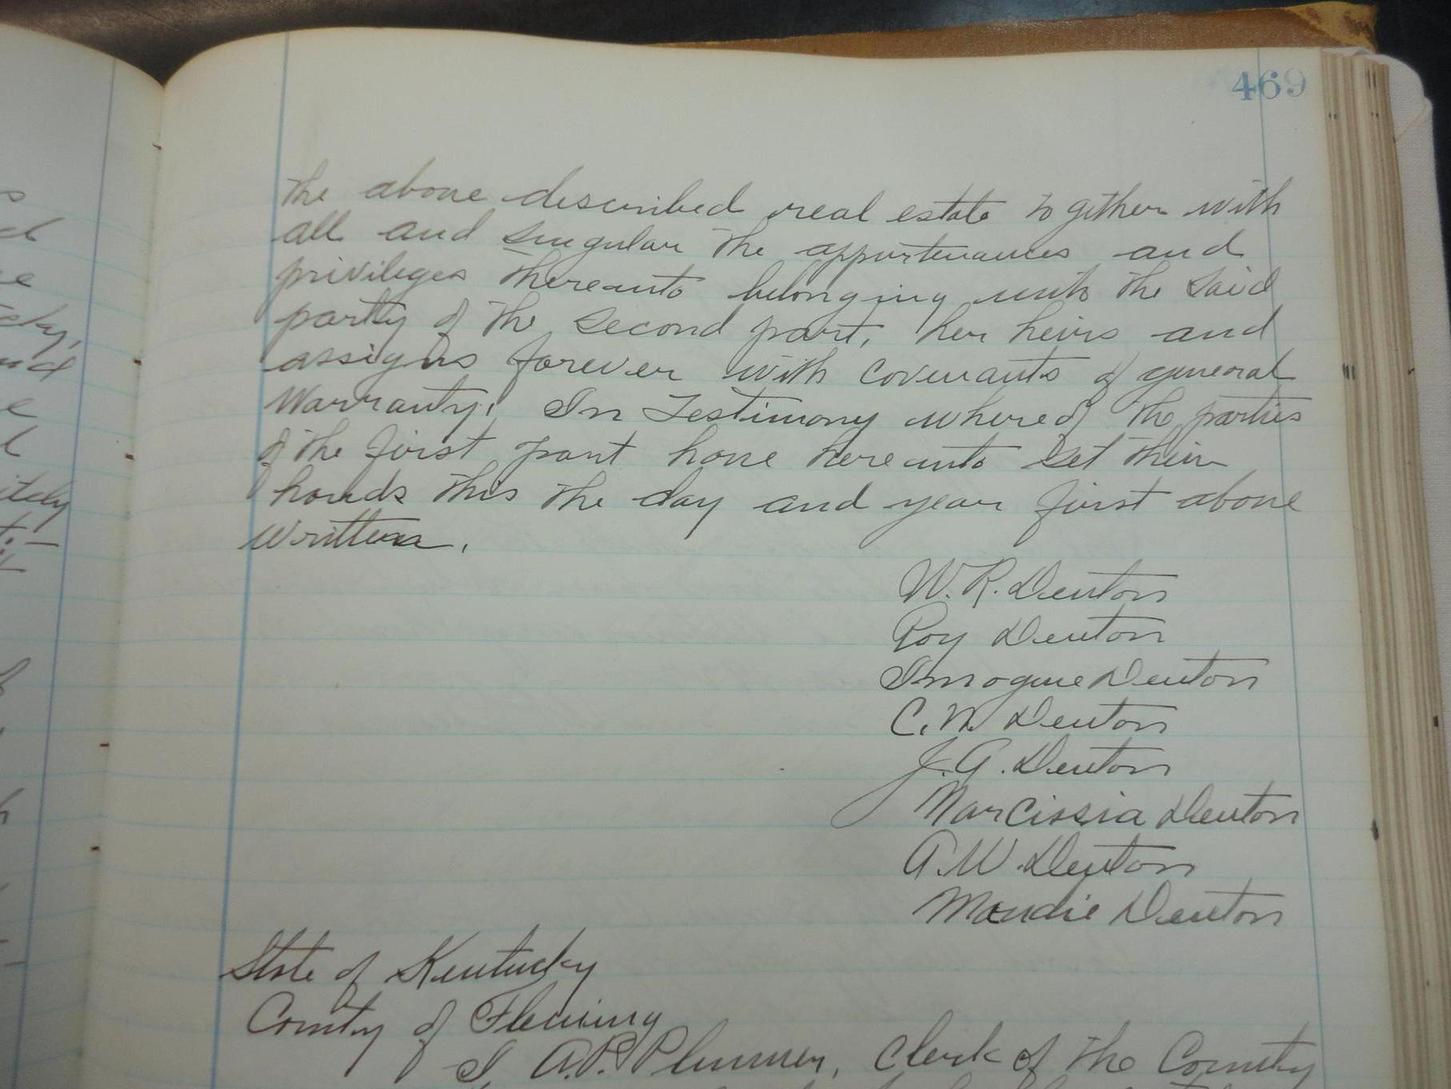 469
The above described real estate together with
all and singular the appurtenances and
privileges thereunto belonging unto the said
party of the second part, her heirs and
assigns forever with covenants of general
Warranty. In Testimony whereof the parties
of the first part have hereunto set their
hands this the day and year first above
written.
W. R. Denton
Roy Denton
Imogene Denton
C. N. Denton
J. A. Denton
Narcissia Denton
A. W. Denton
Maudie Denton
State of Kentucky
County of Fleming
I, A. P. Plummer, Clerk of the County